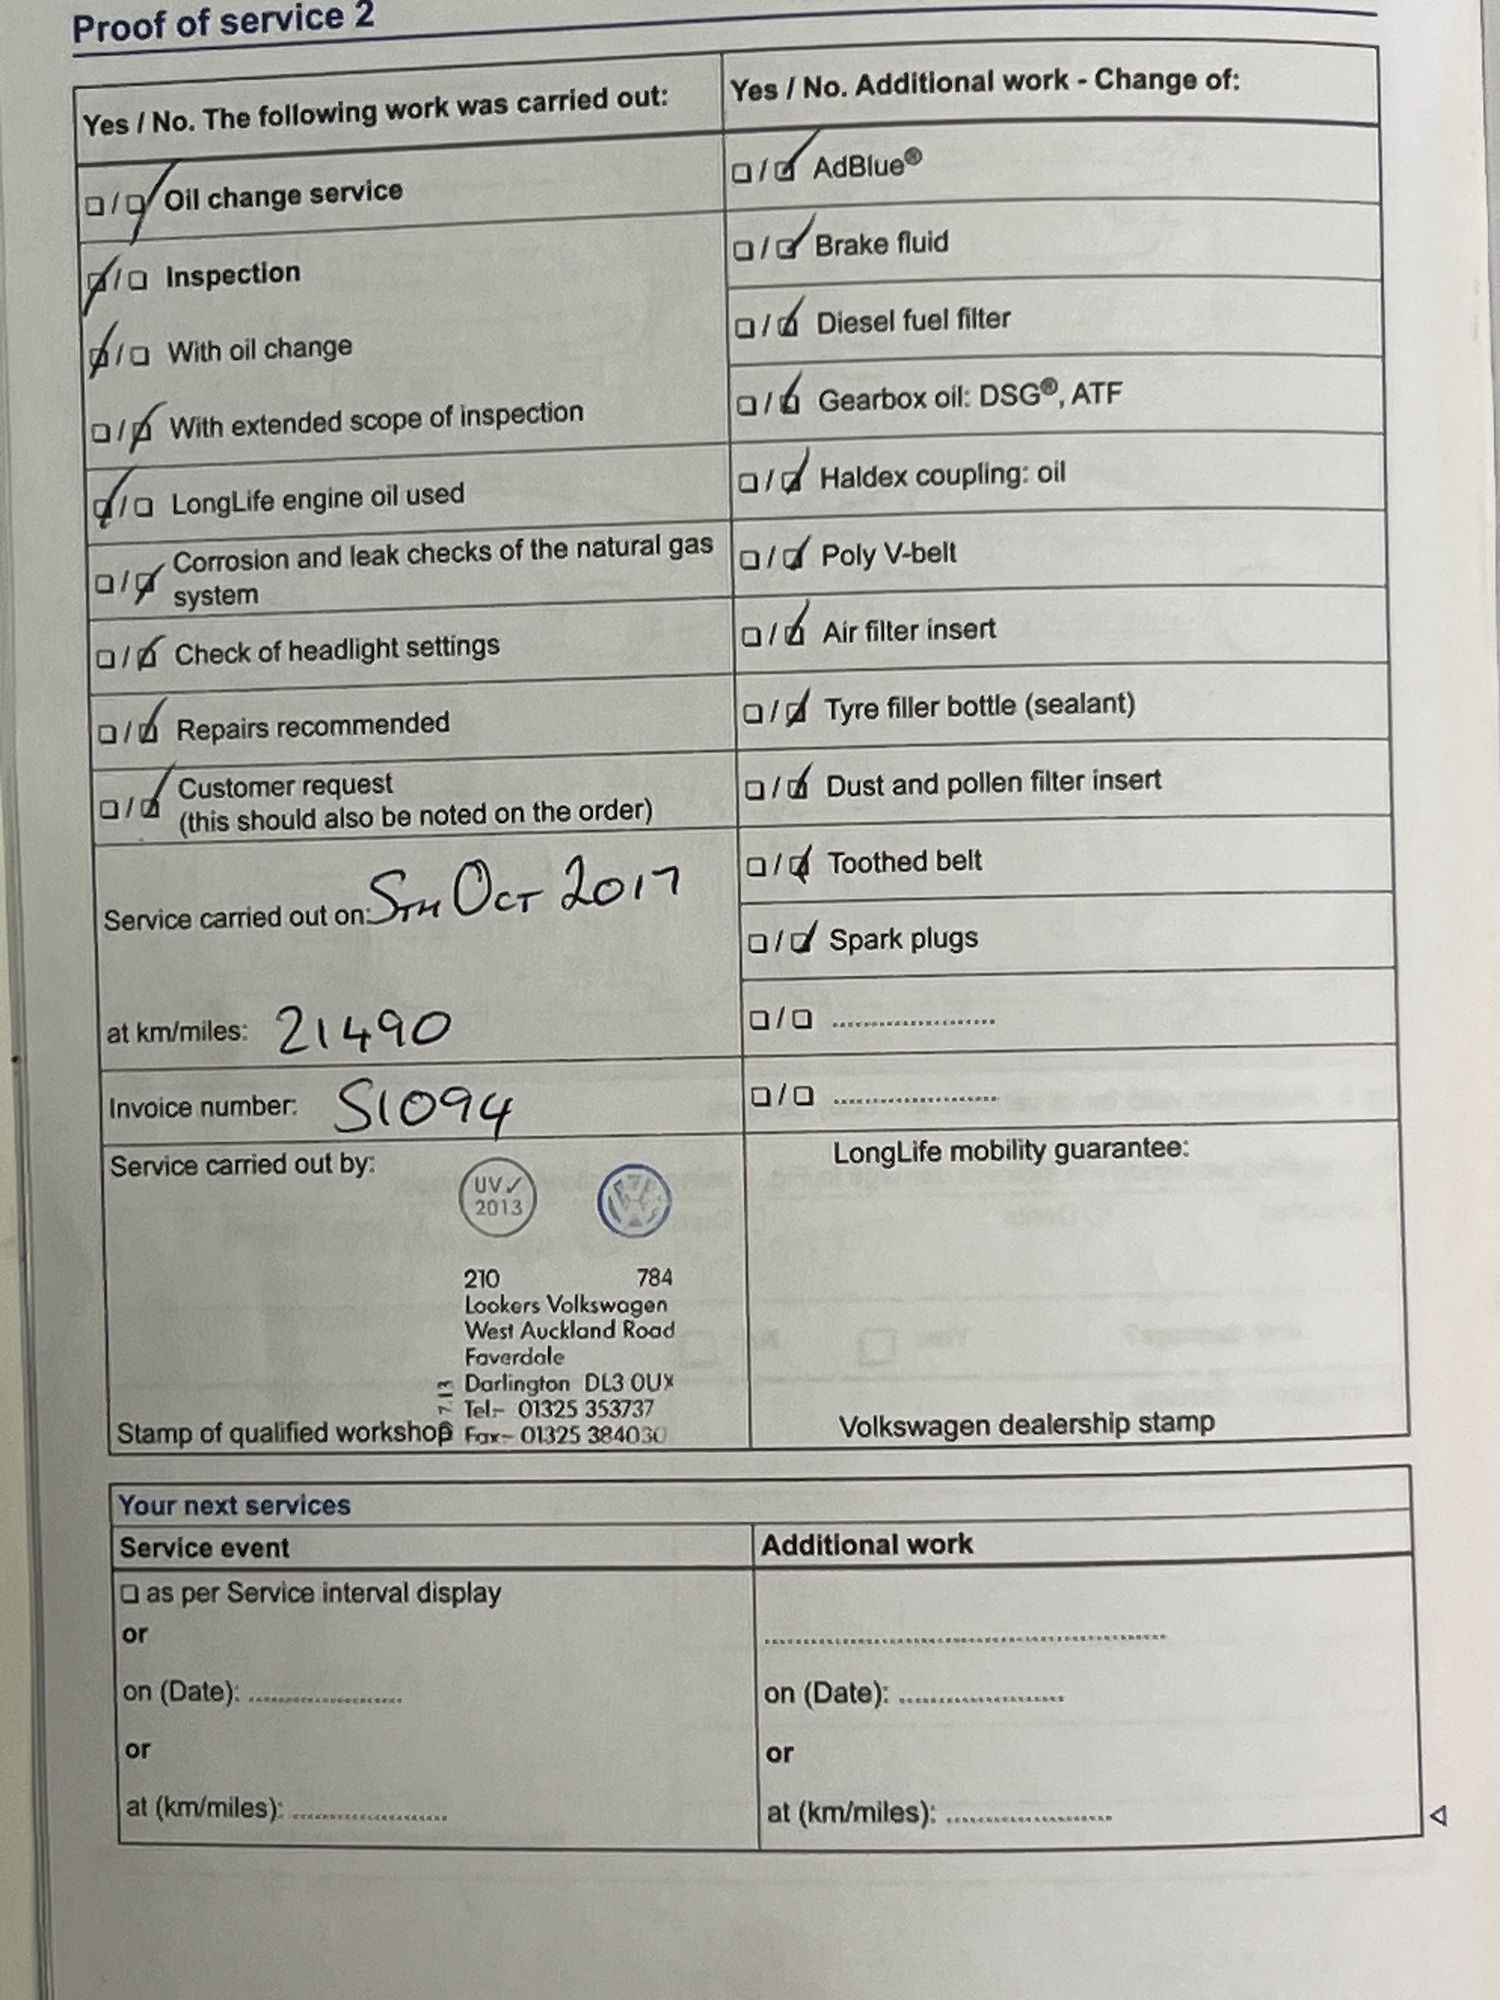 Proof of service 2
Yes / No. The following work was carried out:
❑ / ❑ Oil change service
❑ / ❑ Inspection
❑ / ❑ With oil change
❑ / ❑ With extended scope of inspection
❑ / ❑ LongLife engine oil used
❑ / ❑ Corrosion and leak checks of the natural gas
system
❑ / ❑ Check of headlight settings
❑ / ❑ Repairs recommended
❑ / ❑ Customer request
(this should also be noted on the order)
Service carried out on: 5TH OCT 2017
at km/miles: 21490
Invoice number: 51094
Service carried out by:
UV✓
2013
210 784
Lookers Volkswagen
West Auckland Road
Faverdale
Darlington DL3 0UX
Tel:- 01325 353737
Fax:- 01325 384030
Stamp of qualified workshop
Yes / No. Additional work - Change of:
❑ / ❑ AdBlue®
❑ / ❑ Brake fluid
❑ / ❑ Diesel fuel filter
❑ / ❑ Gearbox oil: DSG®, ATF
❑ / ❑ Haldex coupling: oil
❑ / ❑ Poly V-belt
❑ / ❑ Air filter insert
❑ / ❑ Tyre filler bottle (sealant)
❑ / ❑ Dust and pollen filter insert
❑ / ❑ Toothed belt
❑ / ❑ Spark plugs
❑ / ❑ ......................
❑ / ❑ ......................
LongLife mobility guarantee:
Volkswagen dealership stamp
Your next services
Service event
❑ as per Service interval display
or
on (Date): ......................
or
at (km/miles): ......................
Additional work
............................................
on (Date): ......................
or
at (km/miles): ......................